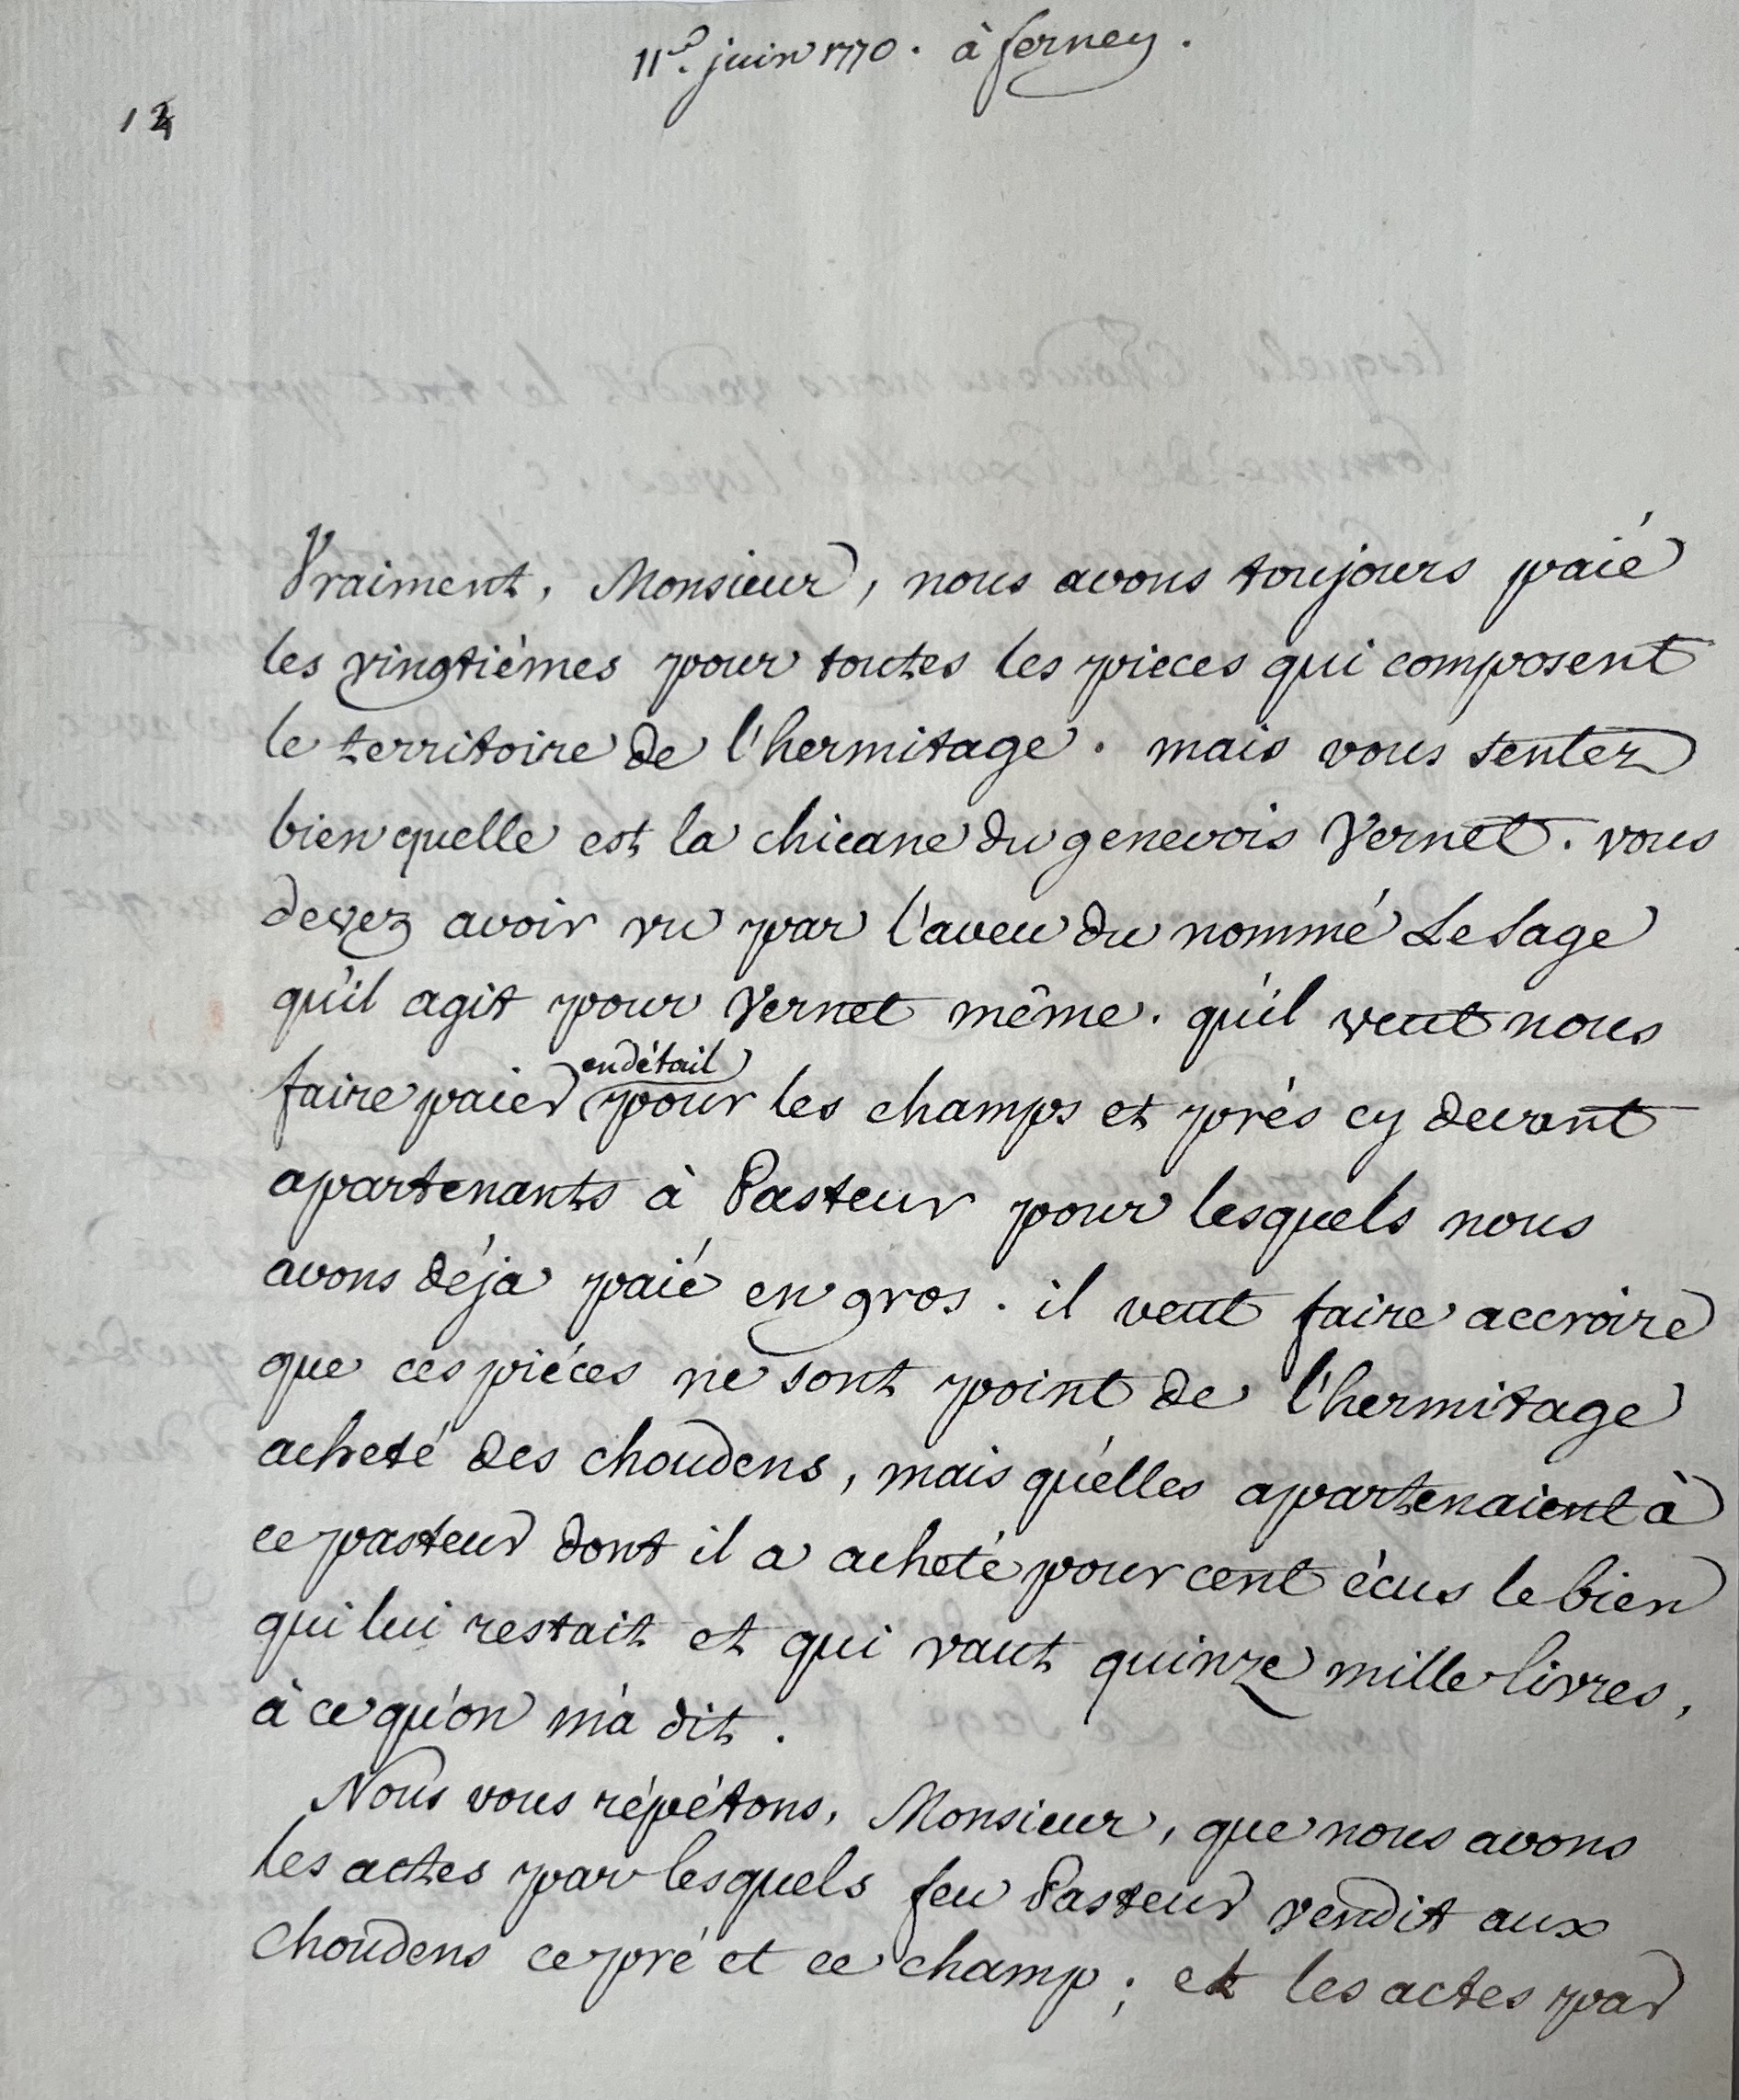 11e. juin 1770. à ferney.
Vraiment, Monsieur, nous avons toujours paié
les vingtièmes pour toutes les pieces qui composent
le territoire de l'hermitage. mais vous sentez
bien quelle est la chicane du genevois Vernet. vous
devez avoir vu par l'aveu du nommé Le Sage
qu'il agit pour Vernet même. qu'il veut nous
en détail
faire paier pour les champs et prés cy devant
apartenants à Pasteur pour lesquels nous
avons déja paié en gros. il veut faire accroire
que ces piéces ne sont point de l'hermitage
acheté des choudens, mais qu'elles apartenaient à
ce pasteur dont il a acheté pour cent écus le bien
qui lui restait et qui vaut quinze mille livres,
à ce qu'on m'a dit.
Nous vous répétons, Monsieur, que nous avons
les actes par lesquels feu Pasteur vendit aux
Choudens ce pré et ce champ; et les actes par